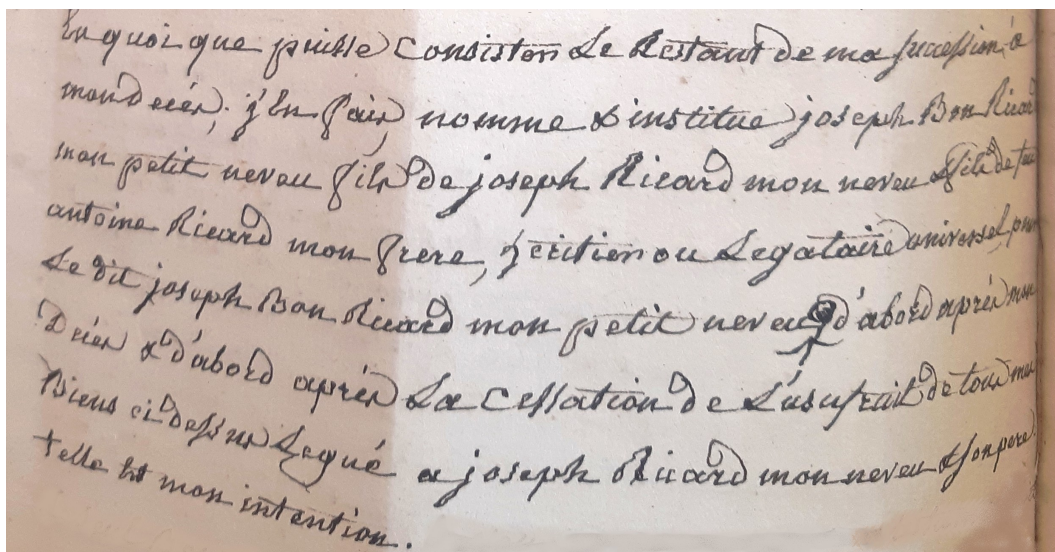 En quoi que puisse Consister Le Restant de ma succession, a
mon deces, j'En fais, nomme & institue joseph Bon Ricard
mon petit neveu fils de joseph Ricard mon neveu & fils de feu
antoine Ricard mon frere, heritier ou Legataire universel, pour
Le dit joseph Bon Ricard mon petit neveu d'abord aprés mon
Decés & d'abord aprés La Cessation de L'usufruit de tous mes
Biens ci dessus Legué a joseph Ricard mon neveu & son pere
telle Est mon intention.